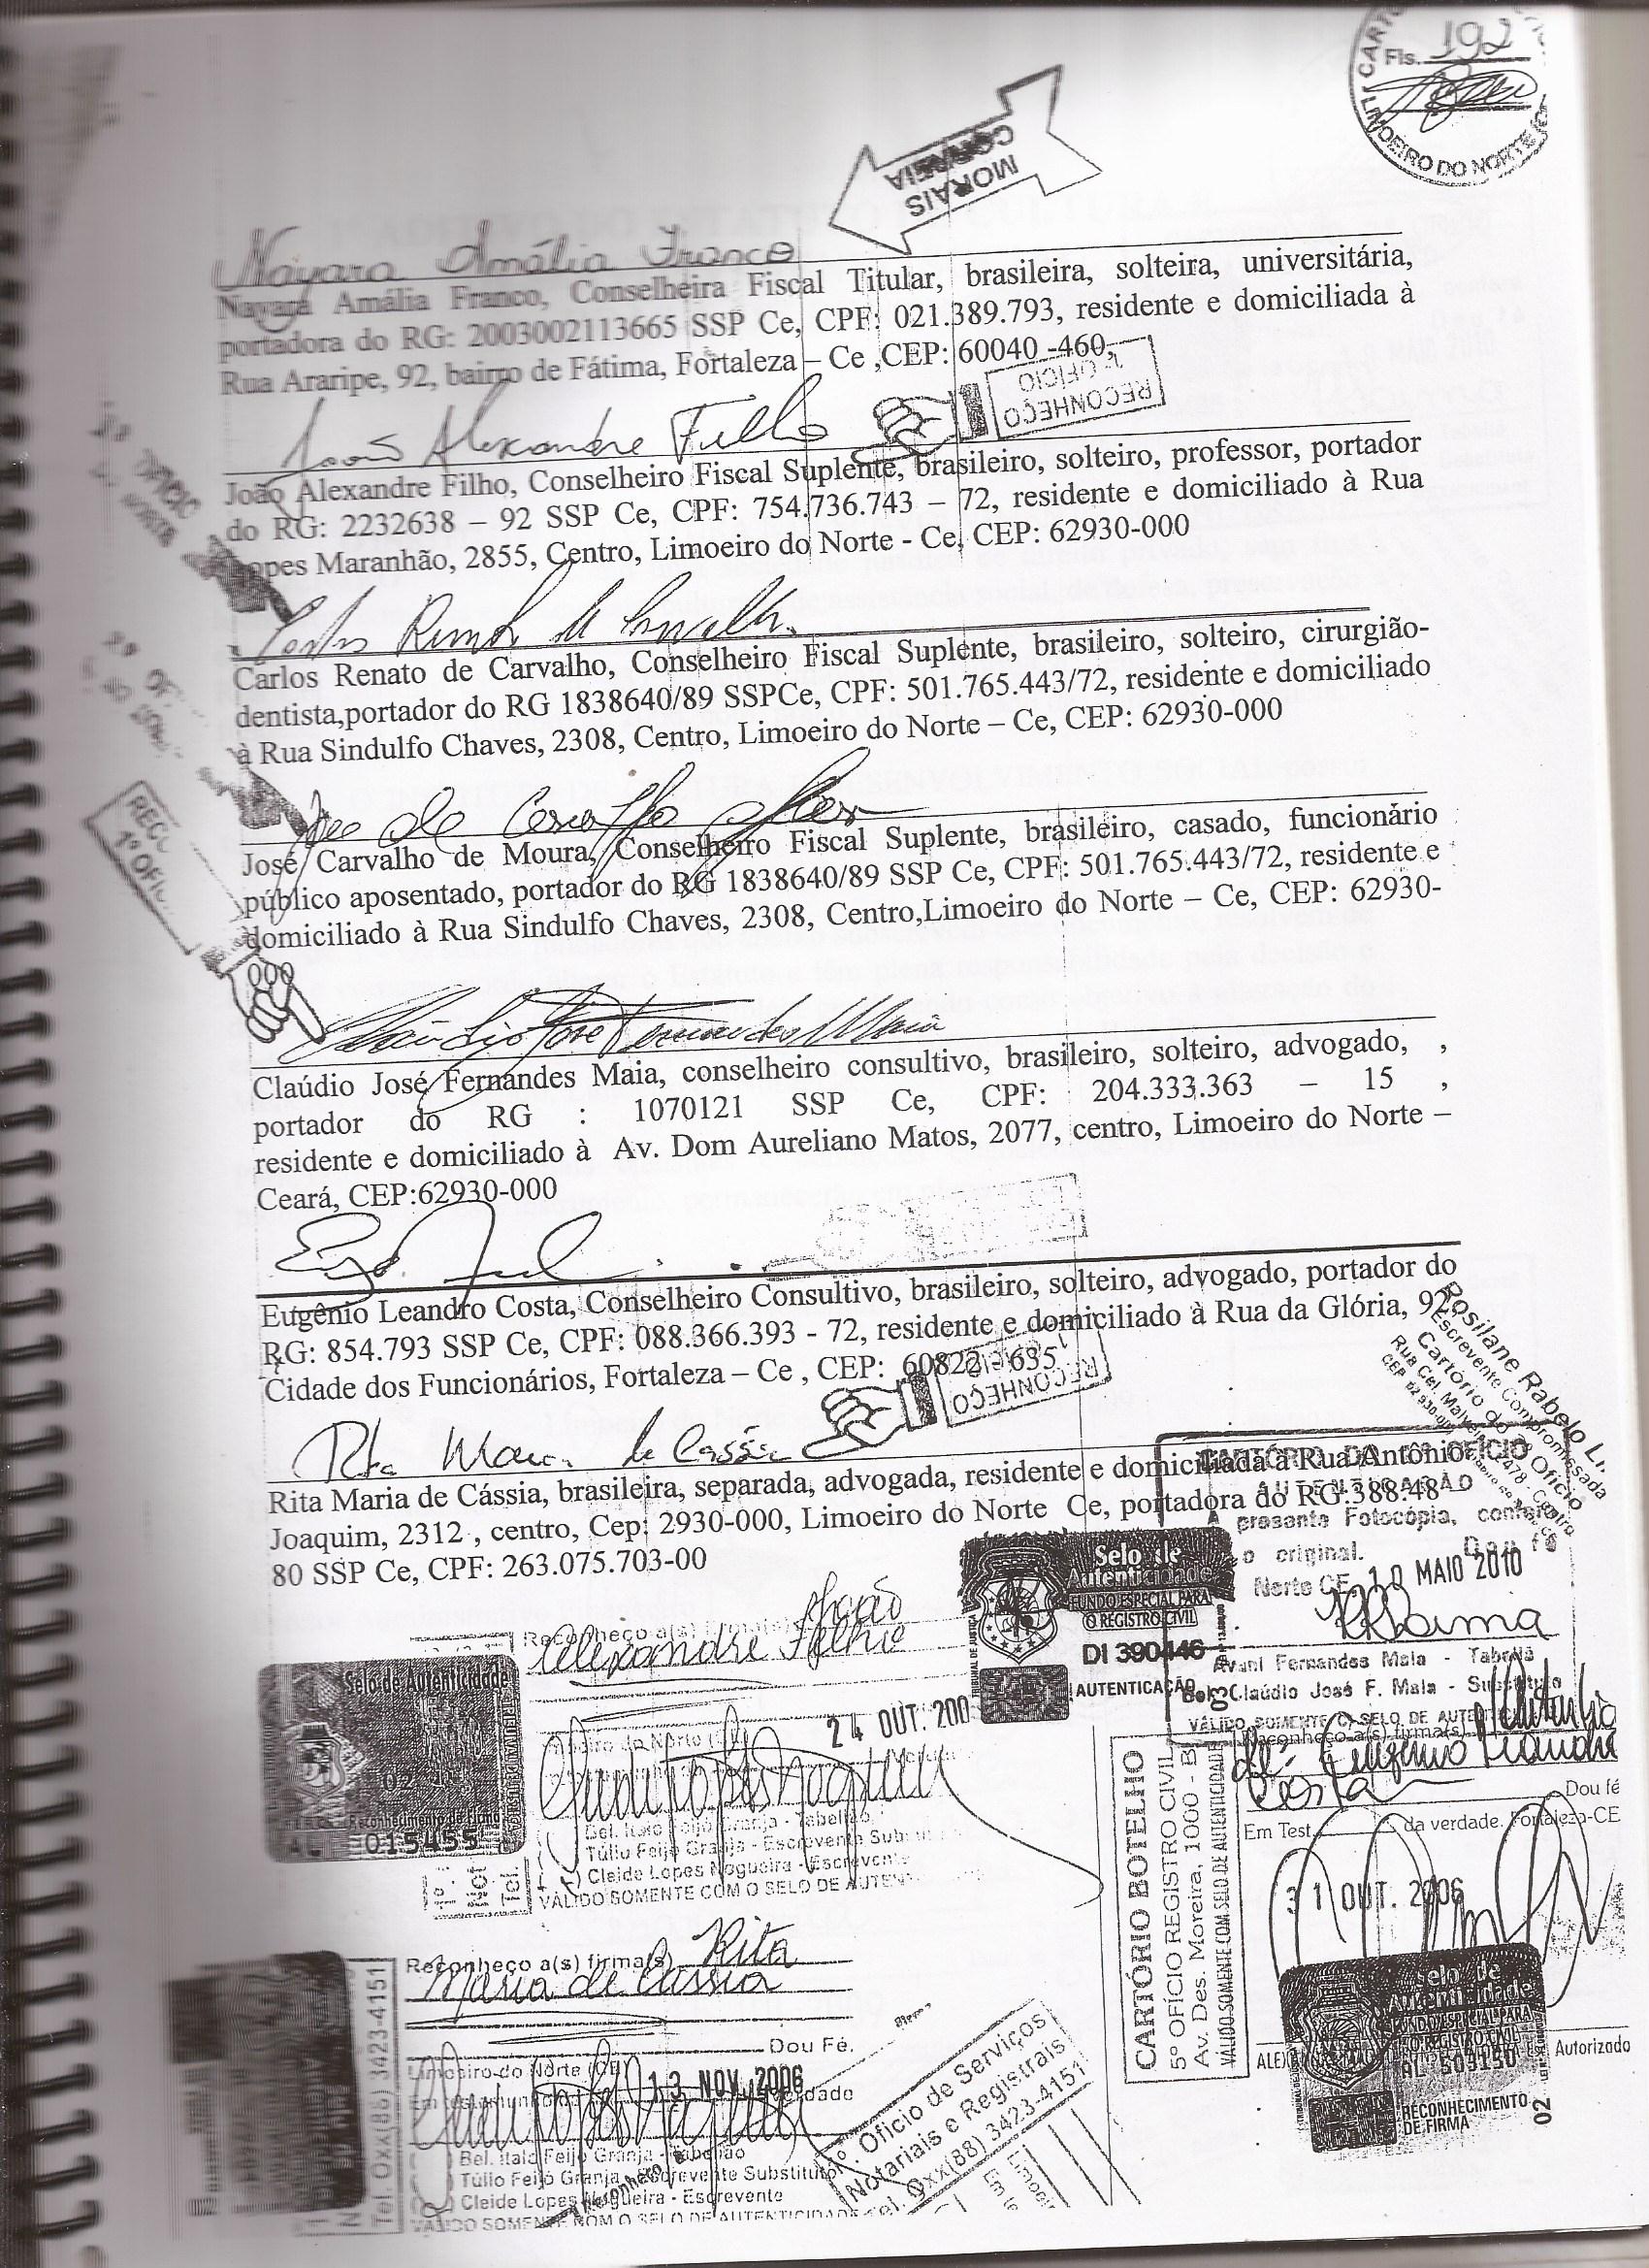 CARTÓ
Fls. 192
LIMOEIRO DO NORTE
MORAIS
CORREIA
Nayara Amália Franco
Nayara Amália Franco, Conselheira Fiscal Titular, brasileira, solteira, universitária,
portadora do RG: 2003002113665 SSP Ce, CPF: 021.389.793, residente e domiciliada à
Rua Araripe, 92, bairro de Fátima, Fortaleza – Ce ,CEP: 60040 -460,
RECONHEÇO
1º OFÍCIO
João Alexandre Filho
João Alexandre Filho, Conselheiro Fiscal Suplente, brasileiro, solteiro, professor, portador
do RG: 2232638 – 92 SSP Ce, CPF: 754.736.743 – 72, residente e domiciliado à Rua
Lopes Maranhão, 2855, Centro, Limoeiro do Norte - Ce, CEP: 62930-000
Carlos Renato de Carvalho
Carlos Renato de Carvalho, Conselheiro Fiscal Suplente, brasileiro, solteiro, cirurgião-
dentista,portador do RG 1838640/89 SSPCe, CPF: 501.765.443/72, residente e domiciliado
à Rua Sindulfo Chaves, 2308, Centro, Limoeiro do Norte – Ce, CEP: 62930-000
José Carvalho de Moura, Conselheiro Fiscal Suplente, brasileiro, casado, funcionário
público aposentado, portador do RG 1838640/89 SSP Ce, CPF: 501.765.443/72, residente e
domiciliado à Rua Sindulfo Chaves, 2308, Centro,Limoeiro do Norte – Ce, CEP: 62930-
000
RECO
1º OFIC
Claúdio José Fernandes Maia
Claúdio José Fernandes Maia, conselheiro consultivo, brasileiro, solteiro, advogado, ,
portador do RG : 1070121 SSP Ce, CPF: 204.333.363 – 15 ,
residente e domiciliado à Av. Dom Aureliano Matos, 2077, centro, Limoeiro do Norte –
Ceará, CEP:62930-000
Eugênio Leandro Costa, Conselheiro Consultivo, brasileiro, solteiro, advogado, portador do
RG: 854.793 SSP Ce, CPF: 088.366.393 - 72, residente e domiciliado à Rua da Glória, 92,
Cidade dos Funcionários, Fortaleza – Ce , CEP: 60822 - 635
RECONHEÇO
1º OFÍCIO
Rosilane Rabelo Li
Escrevente Compromissada
Cartório do 1º Ofício
Rita Maria de Cássia
Rita Maria de Cássia, brasileira, separada, advogada, residente e domiciliada à Rua Antônio
Joaquim, 2312 , centro, Cep: 2930-000, Limoeiro do Norte Ce, portadora do RG:388.48
80 SSP Ce, CPF: 263.075.703-00
CARTÓRIO DO 1º OFÍCIO
AUTENTICAÇÃO
presente Fotocópia, confere
o original. Dou fé
Norte CE, 10 MAIO 2010
RRLama
Avani Fernandes Maia - Tabeliã
Bel. Claúdio José F. Maia - Substituto
VÁLIDO SOMENTE C/ SELO DE AUTENTIC
Selo de
Autenticidade
FUNDO ESPECIAL PARA
O REGISTRO CIVIL
DI 390446
AUTENTICAÇÃO
03
Reconheço a(s) firma(s) João
Alexandre Filho
24 OUT. 200
Limoeiro do Norte (CE)
Bel. Italo Feijó Granja - Tabelião
Túlio Feijó Granja - Escrevente Substitu
Cleide Lopes Nogueira - Escrevente
VÁLIDO SOMENTE COM O SELO DE AUTEN
Selo de Autenticidade
Reconhecimento de Firma
AL 015455
CARTÓRIO BOTELHO
5º OFÍCIO REGISTRO CIVIL
Av. Des. Moreira, 1000 - B
VÁLIDO SOMENTE COM SELO DE AUTENTICIDADE
Reconheço a(s) firma(s)
de: Eugênio Leandro
Costa
Dou fé
Em Test. da verdade. Fortaleza-CE
31 OUT. 2006
Selo de
Autenticidade
FUNDO ESPECIAL PARA
O REGISTRO CIVIL
AL 509150
RECONHECIMENTO
DE FIRMA
02
Autorizado
Reconheço a(s) firma(s) Rita
Maria de Cássia
Dou Fé.
Limoeiro do Norte (CE) 13 NOV. 2006
Em testemunho da verdade
Bel. Italo Feijó Granja - Tabelião
Túlio Feijó Granja - Escrevente Substituto
Cleide Lopes Nogueira - Escrevente
VÁLIDO SOMENTE COM O SELO DE AUTENTICIDADE
Tel. 0xx(88) 3423-4151
1º. Ofício de Serviços
Notariais e Registrais
Tel. 0xx(88) 3423-4151